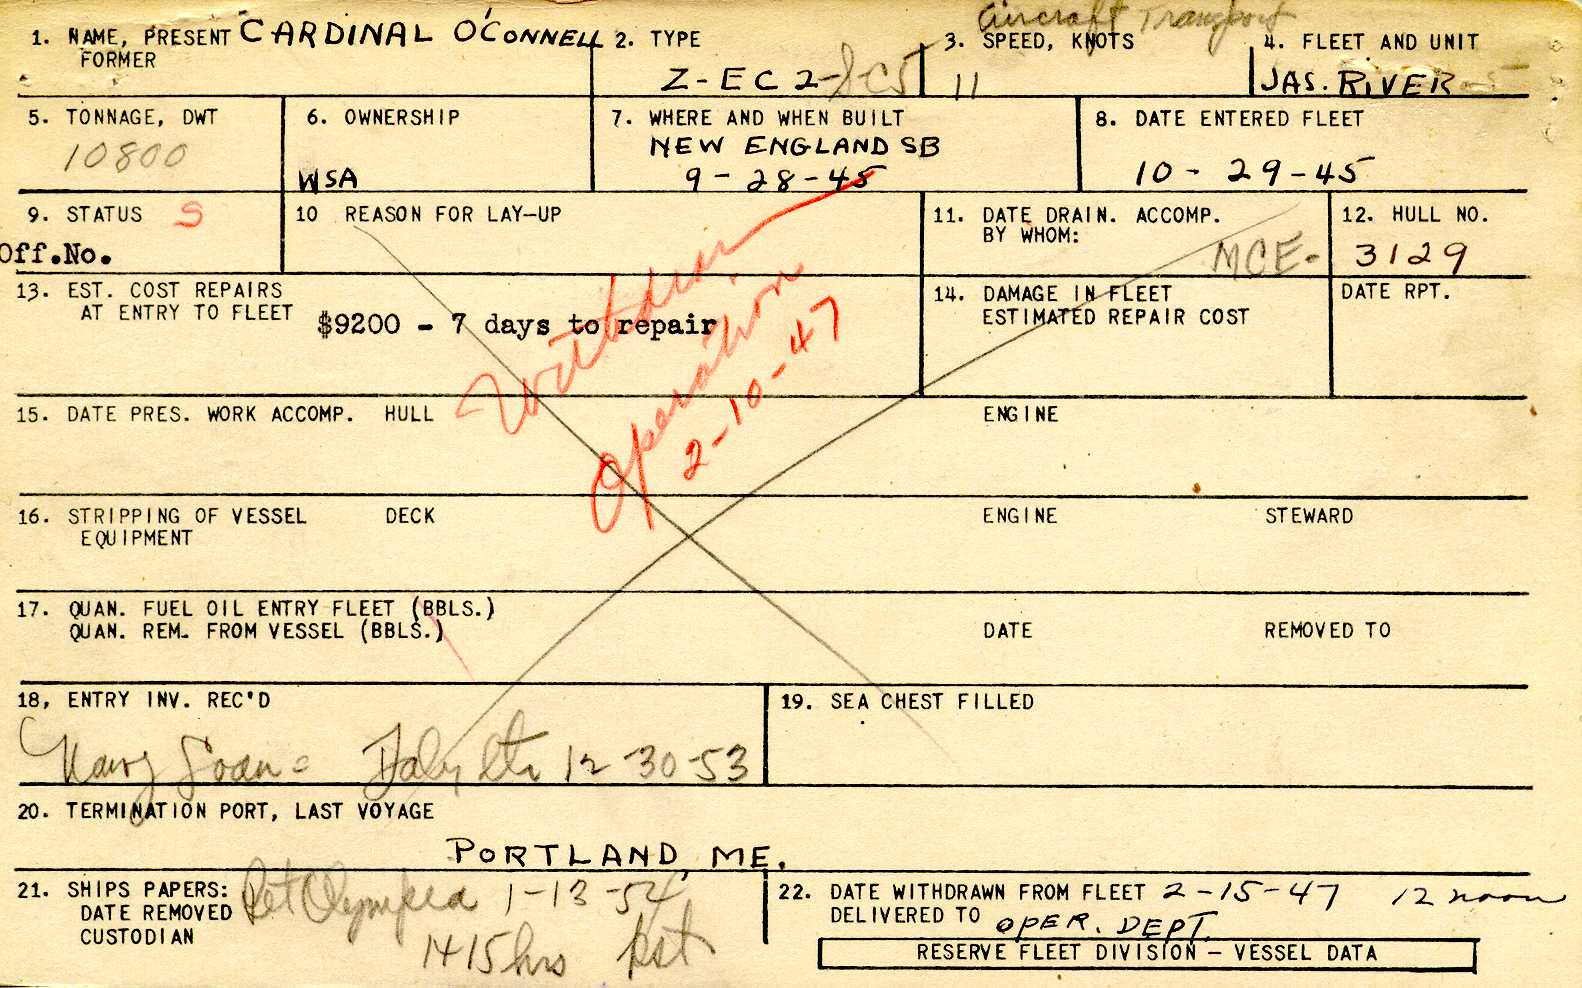 Aircraft Transport
1. NAME, PRESENT CARDINAL O'CONNELL 2. TYPE 3. SPEED, KNOTS 4. FLEET AND UNIT
FORMER
Z-EC2-S-C5 11 JAS. RIVER
5. TONNAGE, DWT 6. OWNERSHIP 7. WHERE AND WHEN BUILT 8. DATE ENTERED FLEET
10800 NEW ENGLAND SB
WSA 9-28-45 10-29-45
9. STATUS S 10 REASON FOR LAY-UP 11. DATE DRAIN. ACCOMP. 12. HULL NO.
BY WHOM:
Off.No. MCE- 3129
13. EST. COST REPAIRS 14. DAMAGE IN FLEET DATE RPT.
AT ENTRY TO FLEET $9200 - 7 days to repair ESTIMATED REPAIR COST
Withdrawn
Operation
2-10-47
15. DATE PRES. WORK ACCOMP. HULL ENGINE
16. STRIPPING OF VESSEL DECK ENGINE STEWARD
EQUIPMENT
17. QUAN. FUEL OIL ENTRY FLEET (BBLS.)
QUAN. REM. FROM VESSEL (BBLS.) DATE REMOVED TO
18, ENTRY INV. REC'D 19. SEA CHEST FILLED
Navy Loan - 12-30-53
20. TERMINATION PORT, LAST VOYAGE
PORTLAND ME.
21. SHIPS PAPERS: Ret Olympia 1-13-54 22. DATE WITHDRAWN FROM FLEET 2-15-47 12 noon
DATE REMOVED DELIVERED TO OPER. DEPT.
CUSTODIAN 1415 hrs pst
RESERVE FLEET DIVISION - VESSEL DATA